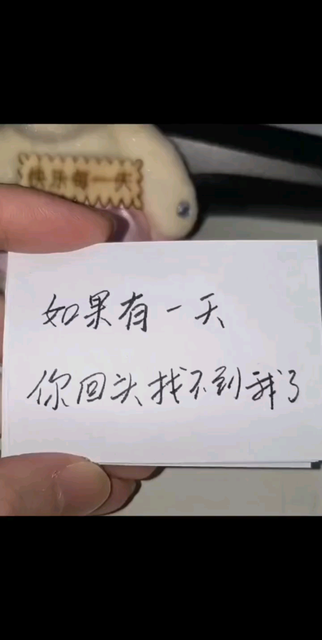 快乐每一天
如果有一天
你回头找不到我了